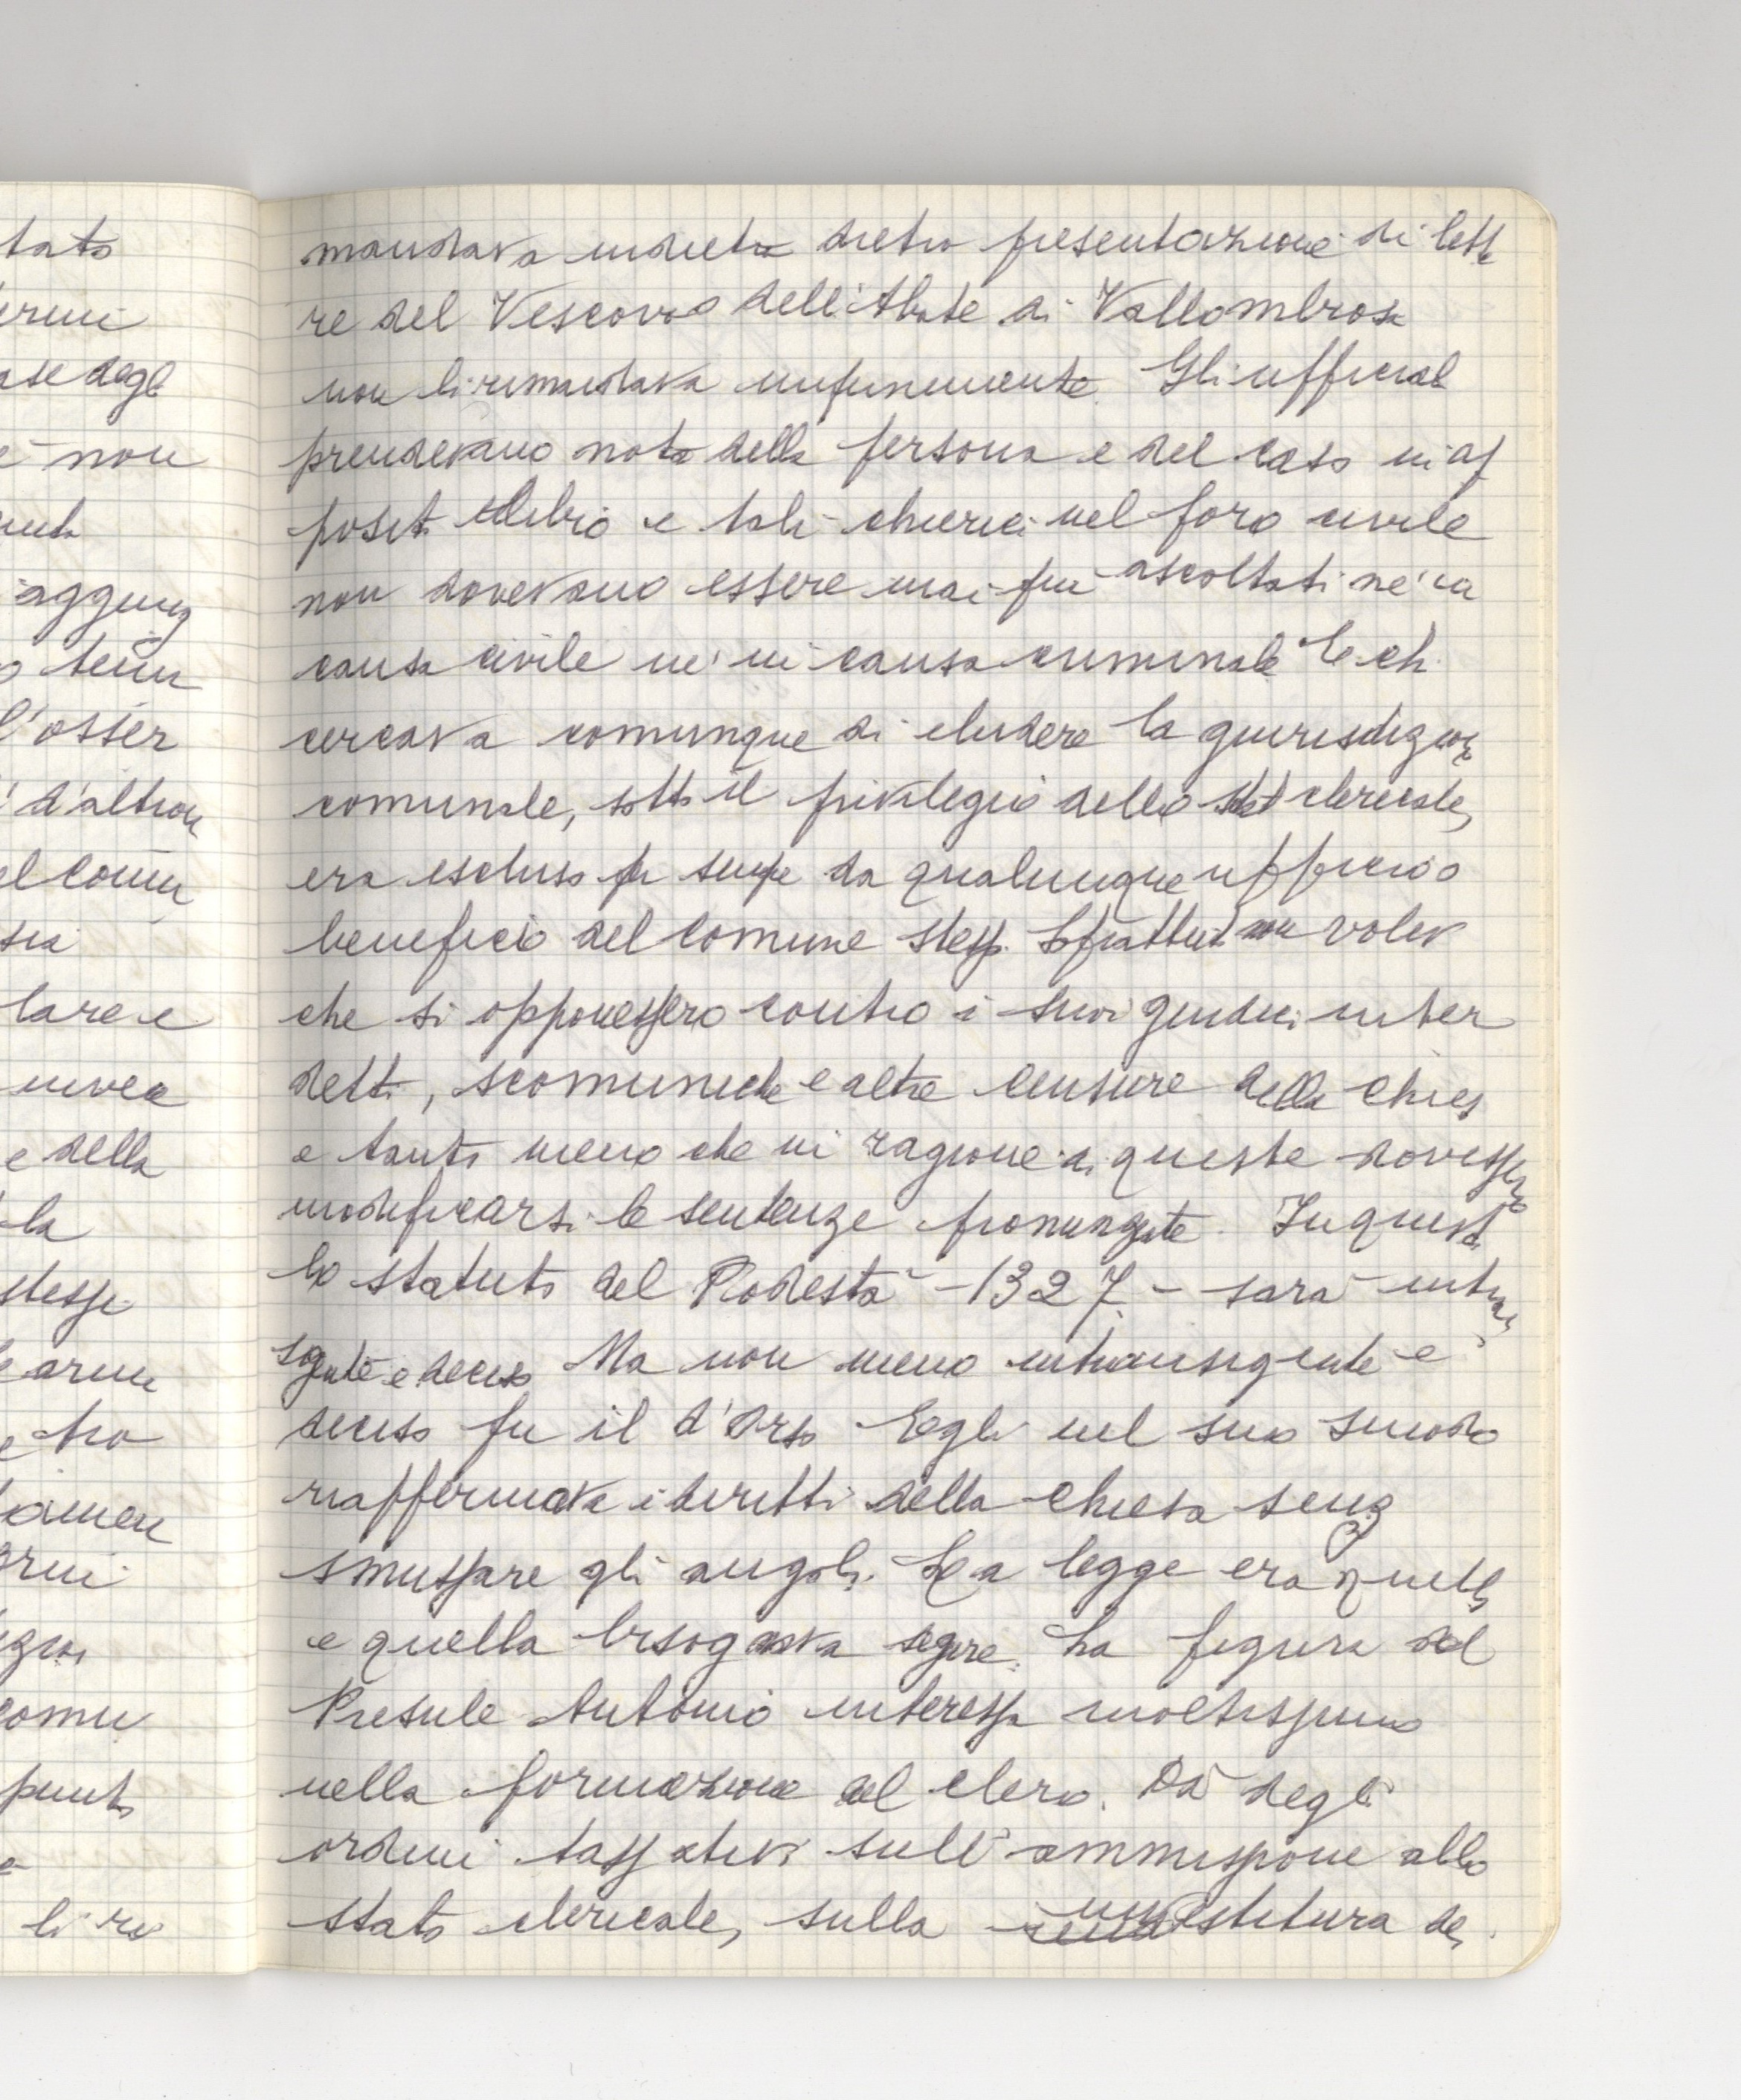 tato
ermi
ase degl
e non
aggiung
o tem
l'osser
d'altron
el comu
sia
lare e
e della
la
stessi
e arm
e tro
comu
punto
li ri
mandava indietro dietro presentazione di lette
re del Vescovo o dell'Abate di Vallombrosa
non li rimandava impunemente. Gli ufficiali
prendevano nota della persona e del caso in ap
posito libro e tali chierici nel foro civile
non dovevano essere mai più ascoltati né in
causa civile né in causa criminale E chi
cercava comunque di eludere la giurisdizione
comunale, sotto il privilegio dello stato clericale,
era escluso per sempre da qualunque ufficio o
beneficio del comune stesso. Soprattutto non volev
che si opponessero contro i suoi giudici inter
detti, scomuniche e altre censure della chiesa
e tanto meno che in ragione di queste dovessero
modificarsi le sentenze pronunziate. In questo
lo statuto del Podestà - 1327 - sarà intran
sigente e deciso Ma non meno intransigente e
deciso fu il d'Orso Egli nel suo sinodo
riaffermava i diritti della Chiesa senza
smussare gli angoli. La legge era quella
e quella bisognava seguire. La figura del
Presule Antonio interessa moltissimo
nella formazione del clero. Dà degli
ordini tassativi sull'ammissione allo
stato clericale, sulla investitura dei